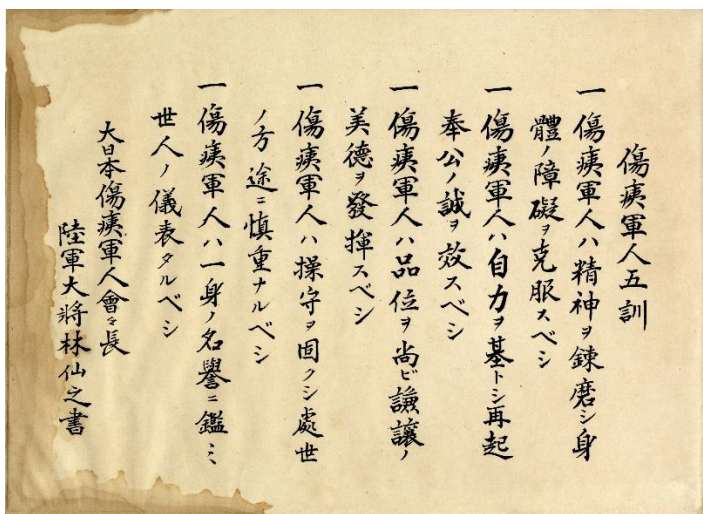 傷痍軍人五訓
一傷痍軍人ハ精神ヲ錬磨シ身
體ノ障礙ヲ克服スベシ
一傷痍軍人ハ自力ヲ基トシ再起
奉公ノ誠ヲ效スベシ
一傷痍軍人ハ品位ヲ尚ビ謙讓ノ
美德ヲ發揮スベシ
一傷痍軍人ハ操守ヲ固クシ處世
ノ方途ニ慎重ナルベシ
一傷痍軍人ハ一身ノ名譽ニ鑑ミ
世人ノ儀表タルベシ
大日本傷痍軍人會々長
陸軍大將林仙之書